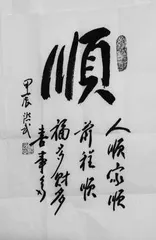 順
人順家順
前程順
福多財多
喜事多
甲辰洪武